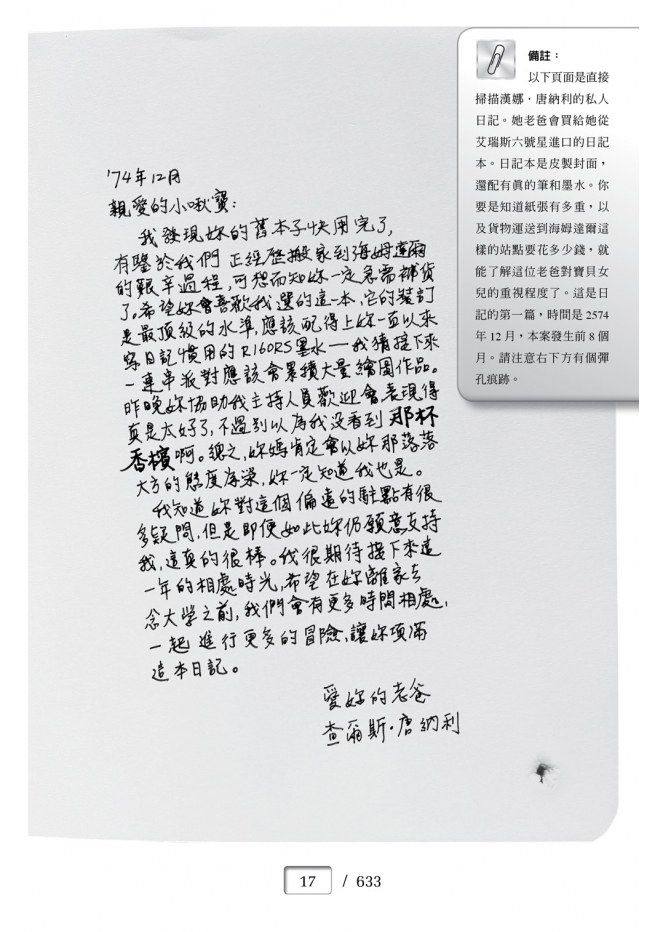 '74年12月
親愛的小啾寶：
我發現妳的舊本子快用完了，
有鑒於我們正經歷搬家到海姆達爾
的艱辛過程，可想而知妳一定急需補貨
了。希望妳會喜歡我選的這一本，它的裝訂
是最頂級的水準，應該配得上妳一直以來
寫日記慣用的R160RS墨水—我猜接下來
一連串派對應該會累積大量繪圖作品。
昨晚妳協助我主持人員歡迎會，表現得
真是太好了，不過別以為我沒看到那杯
香檳啊。總之，妳媽肯定會以妳那落落
大方的態度為榮，妳一定知道我也是。
我知道妳對這個偏遠的駐點有很
多疑問，但是即便如此妳仍願意支持
我，這真的很棒。我很期待接下來這
一年的相處時光，希望在妳離家去
念大學之前，我們會有更多時間相處，
一起進行更多的冒險，讓妳填滿
這本日記。
愛妳的老爸
查爾斯·唐納利
備註：
以下頁面是直接
掃描漢娜．唐納利的私人
日記。她老爸會買給她從
艾瑞斯六號星進口的日記
本。日記本是皮製封面，
還配有真的筆和墨水。你
要是知道紙張有多重，以
及貨物運送到海姆達爾這
樣的站點要花多少錢，就
能了解這位老爸對寶貝女
兒的重視程度了。這是日
記的第一篇，時間是 2574
年 12 月，本案發生前 8 個
月。請注意右下方有個彈
孔痕跡。
17 / 633